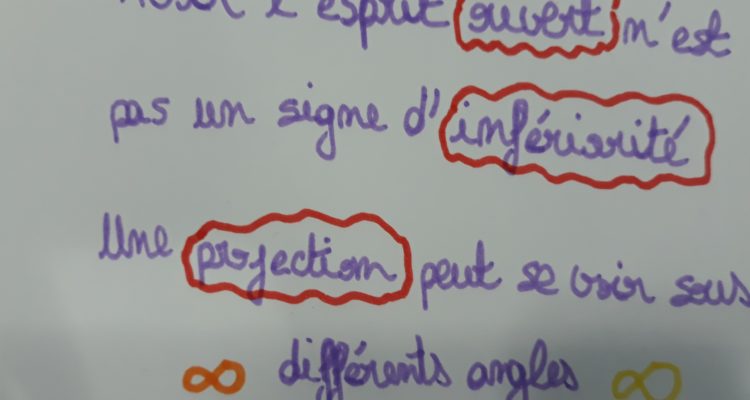 Avoir l'esprit ouvert n'est
pas un signe d'infériorité
Une projection peut se voir sous
∞ différents angles ∞